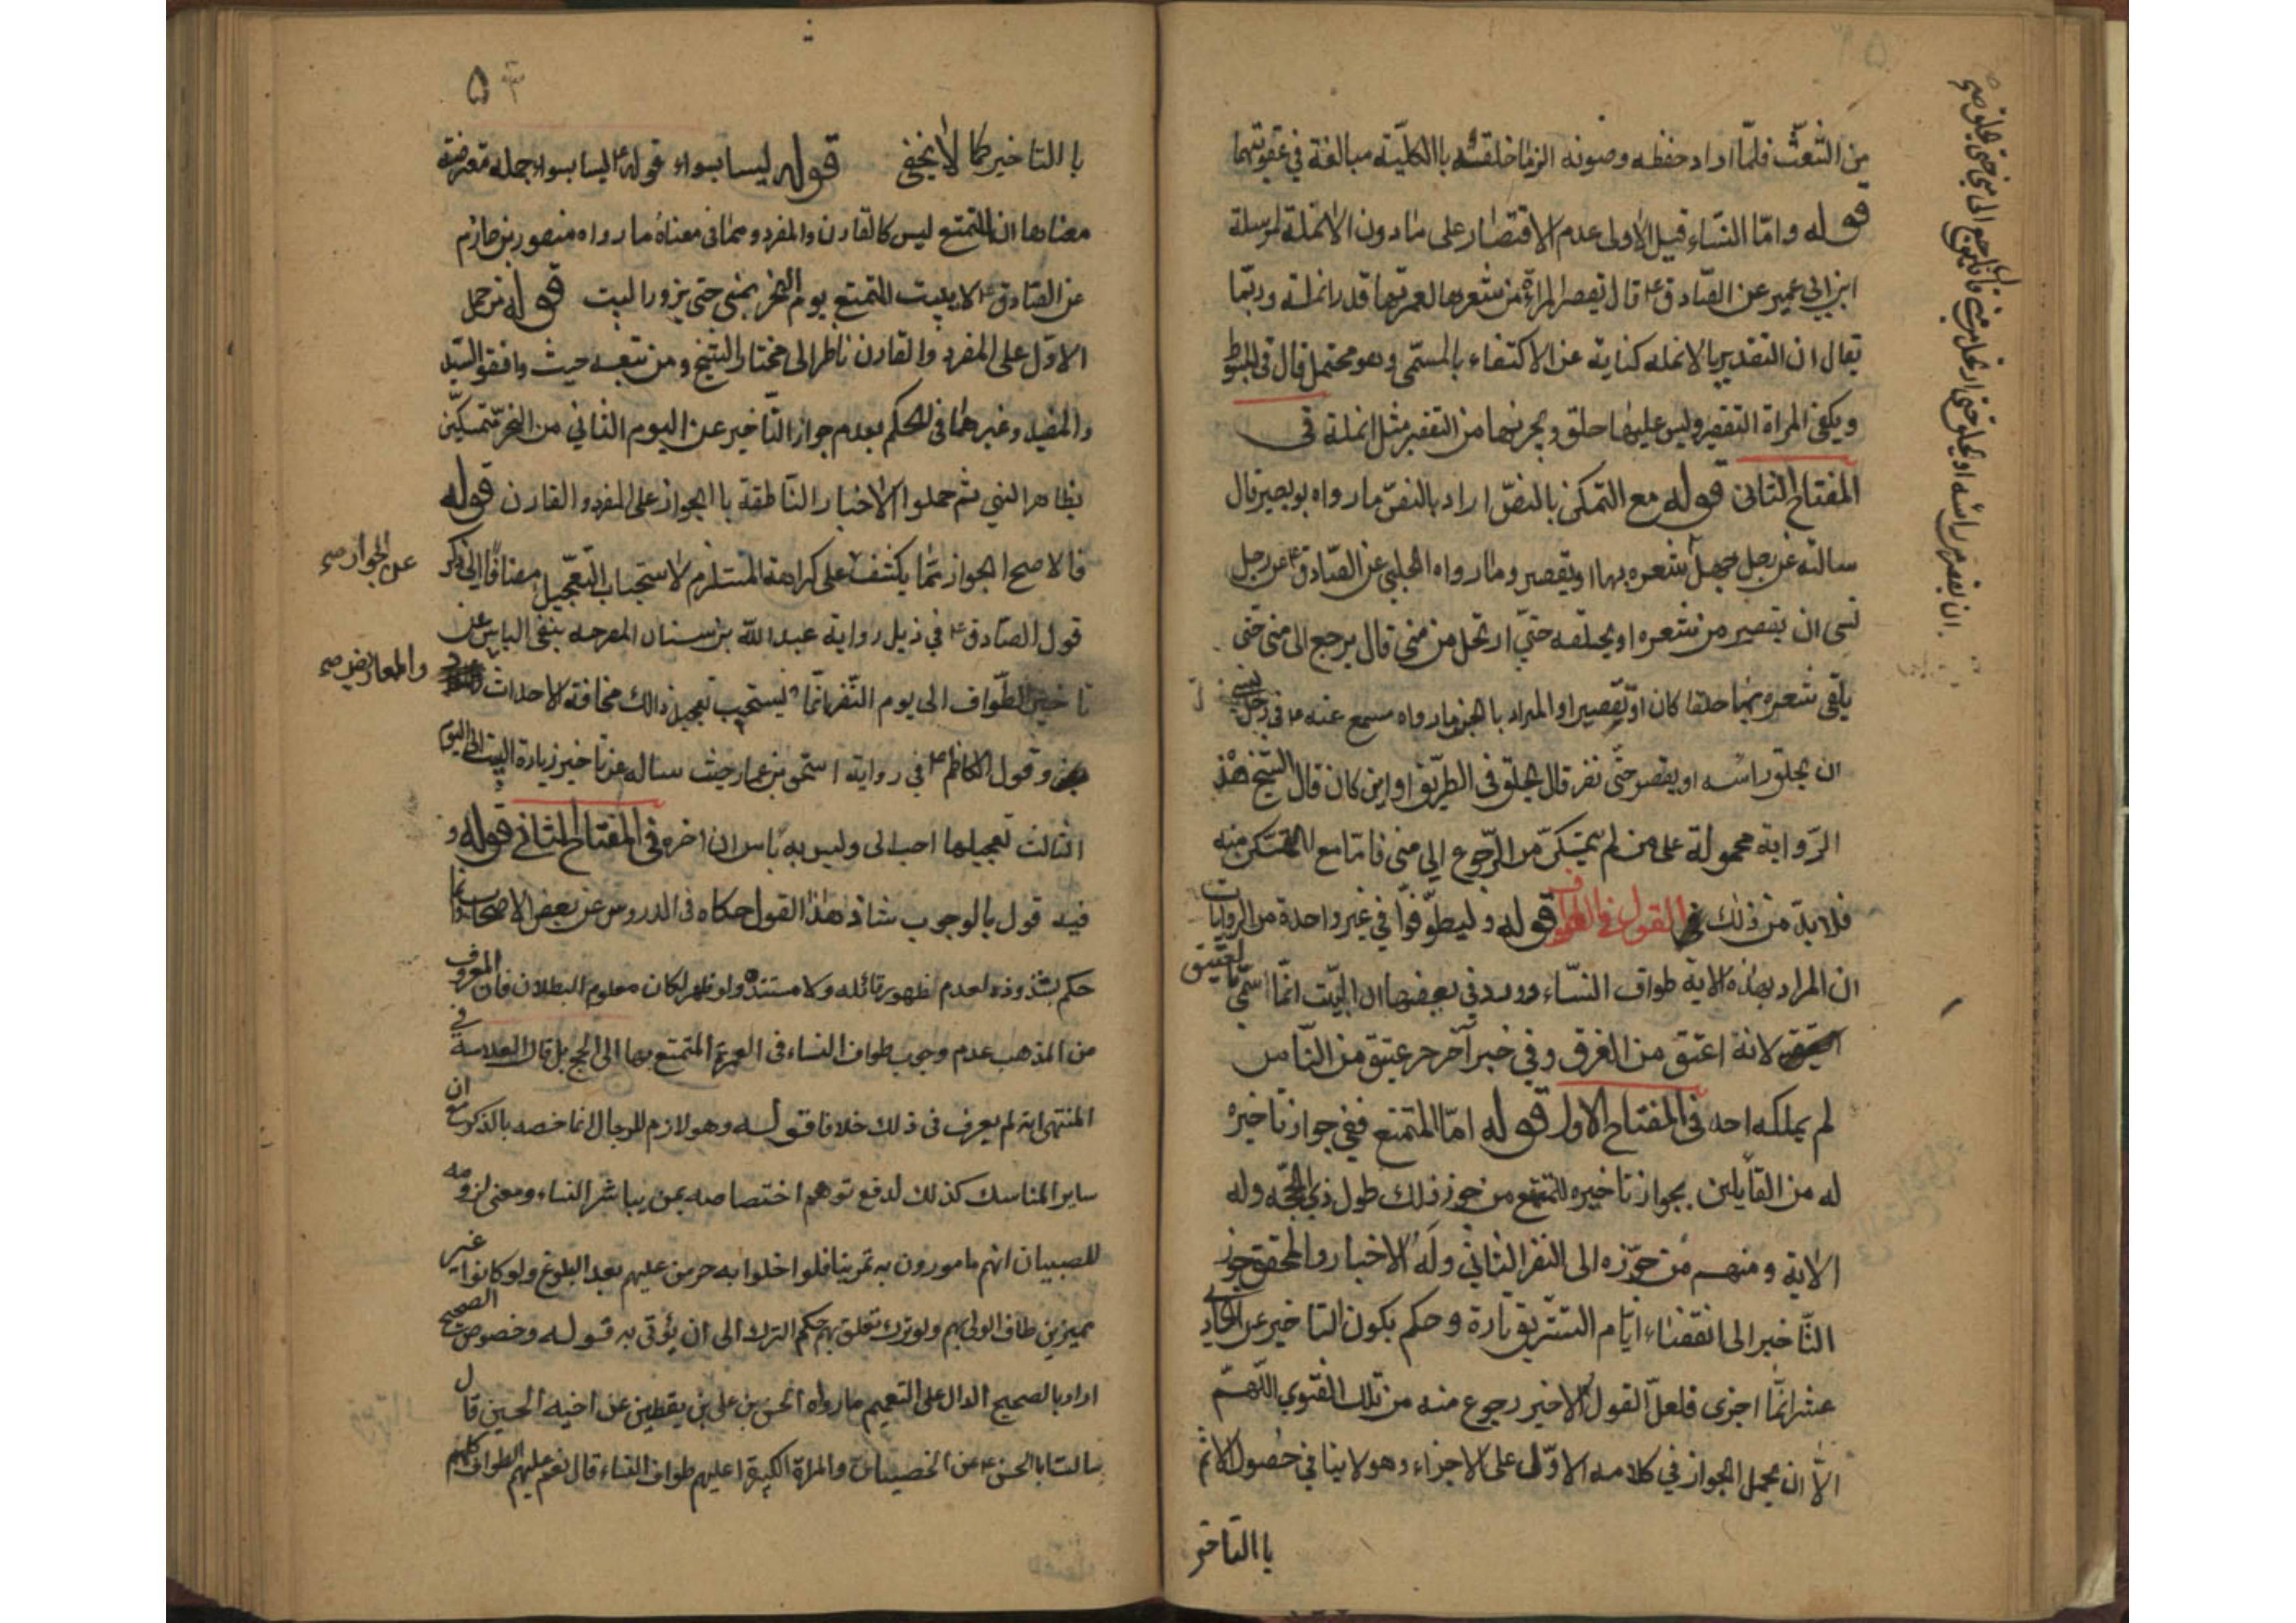 من التشعث فلما اراد حفظه وصونه الزما خلقته باالكلية مبالغة في عقوبتهما
قوله واما النساء قيل الاولى عدم الاقتصار على مادون الانملة لمرسلة
ابن ابي عمير عن الصادق ع قال تقصر المراة من شعرها لعمرتها قدر انملة وربما
يقال ان التقدير بالانمله كناية عن الاكتفاء بالمسمى وهو محتمل قال في المبسوط
ويكفى المراة التقصير وليس عليها حلق ويجزيها من التقصير مثل انملة في
المفتاح الثاني قوله مع التمكن بالنص اراد بالنص ما رواه بوبصير قال
سالته عن رجل جهل شعره بها او يقصر وما رواه الحلبي عن الصادق ع عن رجل
نسى ان يقصر من شعره او يحلقه حتى ارتحل من منى قال يرجع الى منى حتى
يلقى شعره بها حلقا كان او تقصيرا والمراد بالخبر ما رواه مسمع عنه ع في رجل نسي
ان يحلق راسه او يقصر حتى نفر قال يحلق في الطريق او اين كان قال الشيخ هذه
الرواية محمولة على من لم يتمكن من الرجوع الى منى فاما مع التمكن منه
فلا بد من ذلك القول في الطواف قوله وليطوفوا في غير واحدة من الروايات
ان المراد بهذه الاية طواف النساء وورد في بعضها ان البيت انما سمى العتيق
لانه اعتق من الغرق وفي خبر آخر حر عتيق من الناس
لم يملكه احد في المفتاح الاول قوله اما المتمتع ففي جواز تاخيره
له من القايلين بجواز تاخيره للمتمتع من جوز ذلك طول ذي الحجه وله
الاية ومنهم من جوزه الى النفر الثاني وله الاخبار والمحقق جوز
التاخير الى انقضاء ايام التشريق تارة وحكم بكون التاخير عن الحادي
عشر انما اجزى فلعل القول الاخير رجوع منه من تلك الفتوى اللهم
الا ان يحمل الجواز في كلامه الاول على الاجزاء وهو لا ينافي حصول الاثم
باالتاخير
ان يقصر من راسه او يحلق حتى ارتحل من منى قال يرجع الى منى حتى يحلق صح
۵۳
باالتاخير كما لا يخفى قوله ليسا بسواء قوله ع ليسا بسواء جمله معترضة
معناها ان المتمتع ليس كالقارن والمفرد ومما في معناه ما رواه منصور بن حازم
عن الصادق ع لا يبيت المتمتع يوم النحر بمنى حتى يزور البيت قوله من حمل
الاول على المفرد والقارن ناظر الى مختار الشيخ ومن تبعه حيث وافقوا السيد
والمفيد وغيرهما في الحكم بعدم جواز التاخير عن اليوم الثاني من النحر متمسكين
بظاهر النهي ثم حملوا الاخبار الناطقة باالجواز على المفرد والقارن قوله
فالاصح الجواز مما يكشف على كراهته المستلزم لاستحباب التعجيل مضافا الى ذكر
عن الجواز صح
قول الصادق ع في ذيل رواية عبد الله بن سنان المصرحه بنفى الباس عن
تاخير الطواف الى يوم النفر انما يستحب تعجيل ذالك مخافة الاحداث
والمعاريض صح
وقول الكاظم ع في رواية اسحق بن عمار حيث ساله عن تاخير زيارة البيت الى اليوم
الثالث تعجيلها احب الى وليس به باس ان اخره في المفتاح الثاني قوله و
فيه قول بالوجوب شاذ هذا القول حكاه في الدروس عن بعض الاصحاب وانما
حكم بشذوذه لعدم ظهور قائله ولا مستنده ولو ظهر لكان معلوم البطلان فان المعروف
من المذهب عدم وجوب طواف النساء في العمرة المتمتع بها الى الحج بل قال العلامة في
المنتهى انه لم يعرف في ذلك خلافا قوله وهو لازم للرجال انما خصه بالذكر مع ان
ساير المناسك كذلك لدفع توهم اختصاصه بمن يباشر النساء ومعنى لزومه
للصبيان انهم مامورون به تمرينا فلو اخلوا به حرمن عليهم بعد البلوغ ولو كانوا غير
مميزين طاف الولى بهم ولو ترك تعلق بهم حكم الترك الى ان يؤتى به قوله وخصوص الصحيح
اراد بالصحيح الدال على التعميم ما رواه الحسن بن علي بن يقطين عن اخيه الحسين قال
سالت ابا الحسن ع عن الخصيان والمراة الكبيرة اعليهم طواف النساء قال نعم عليهم الطواف كلهم